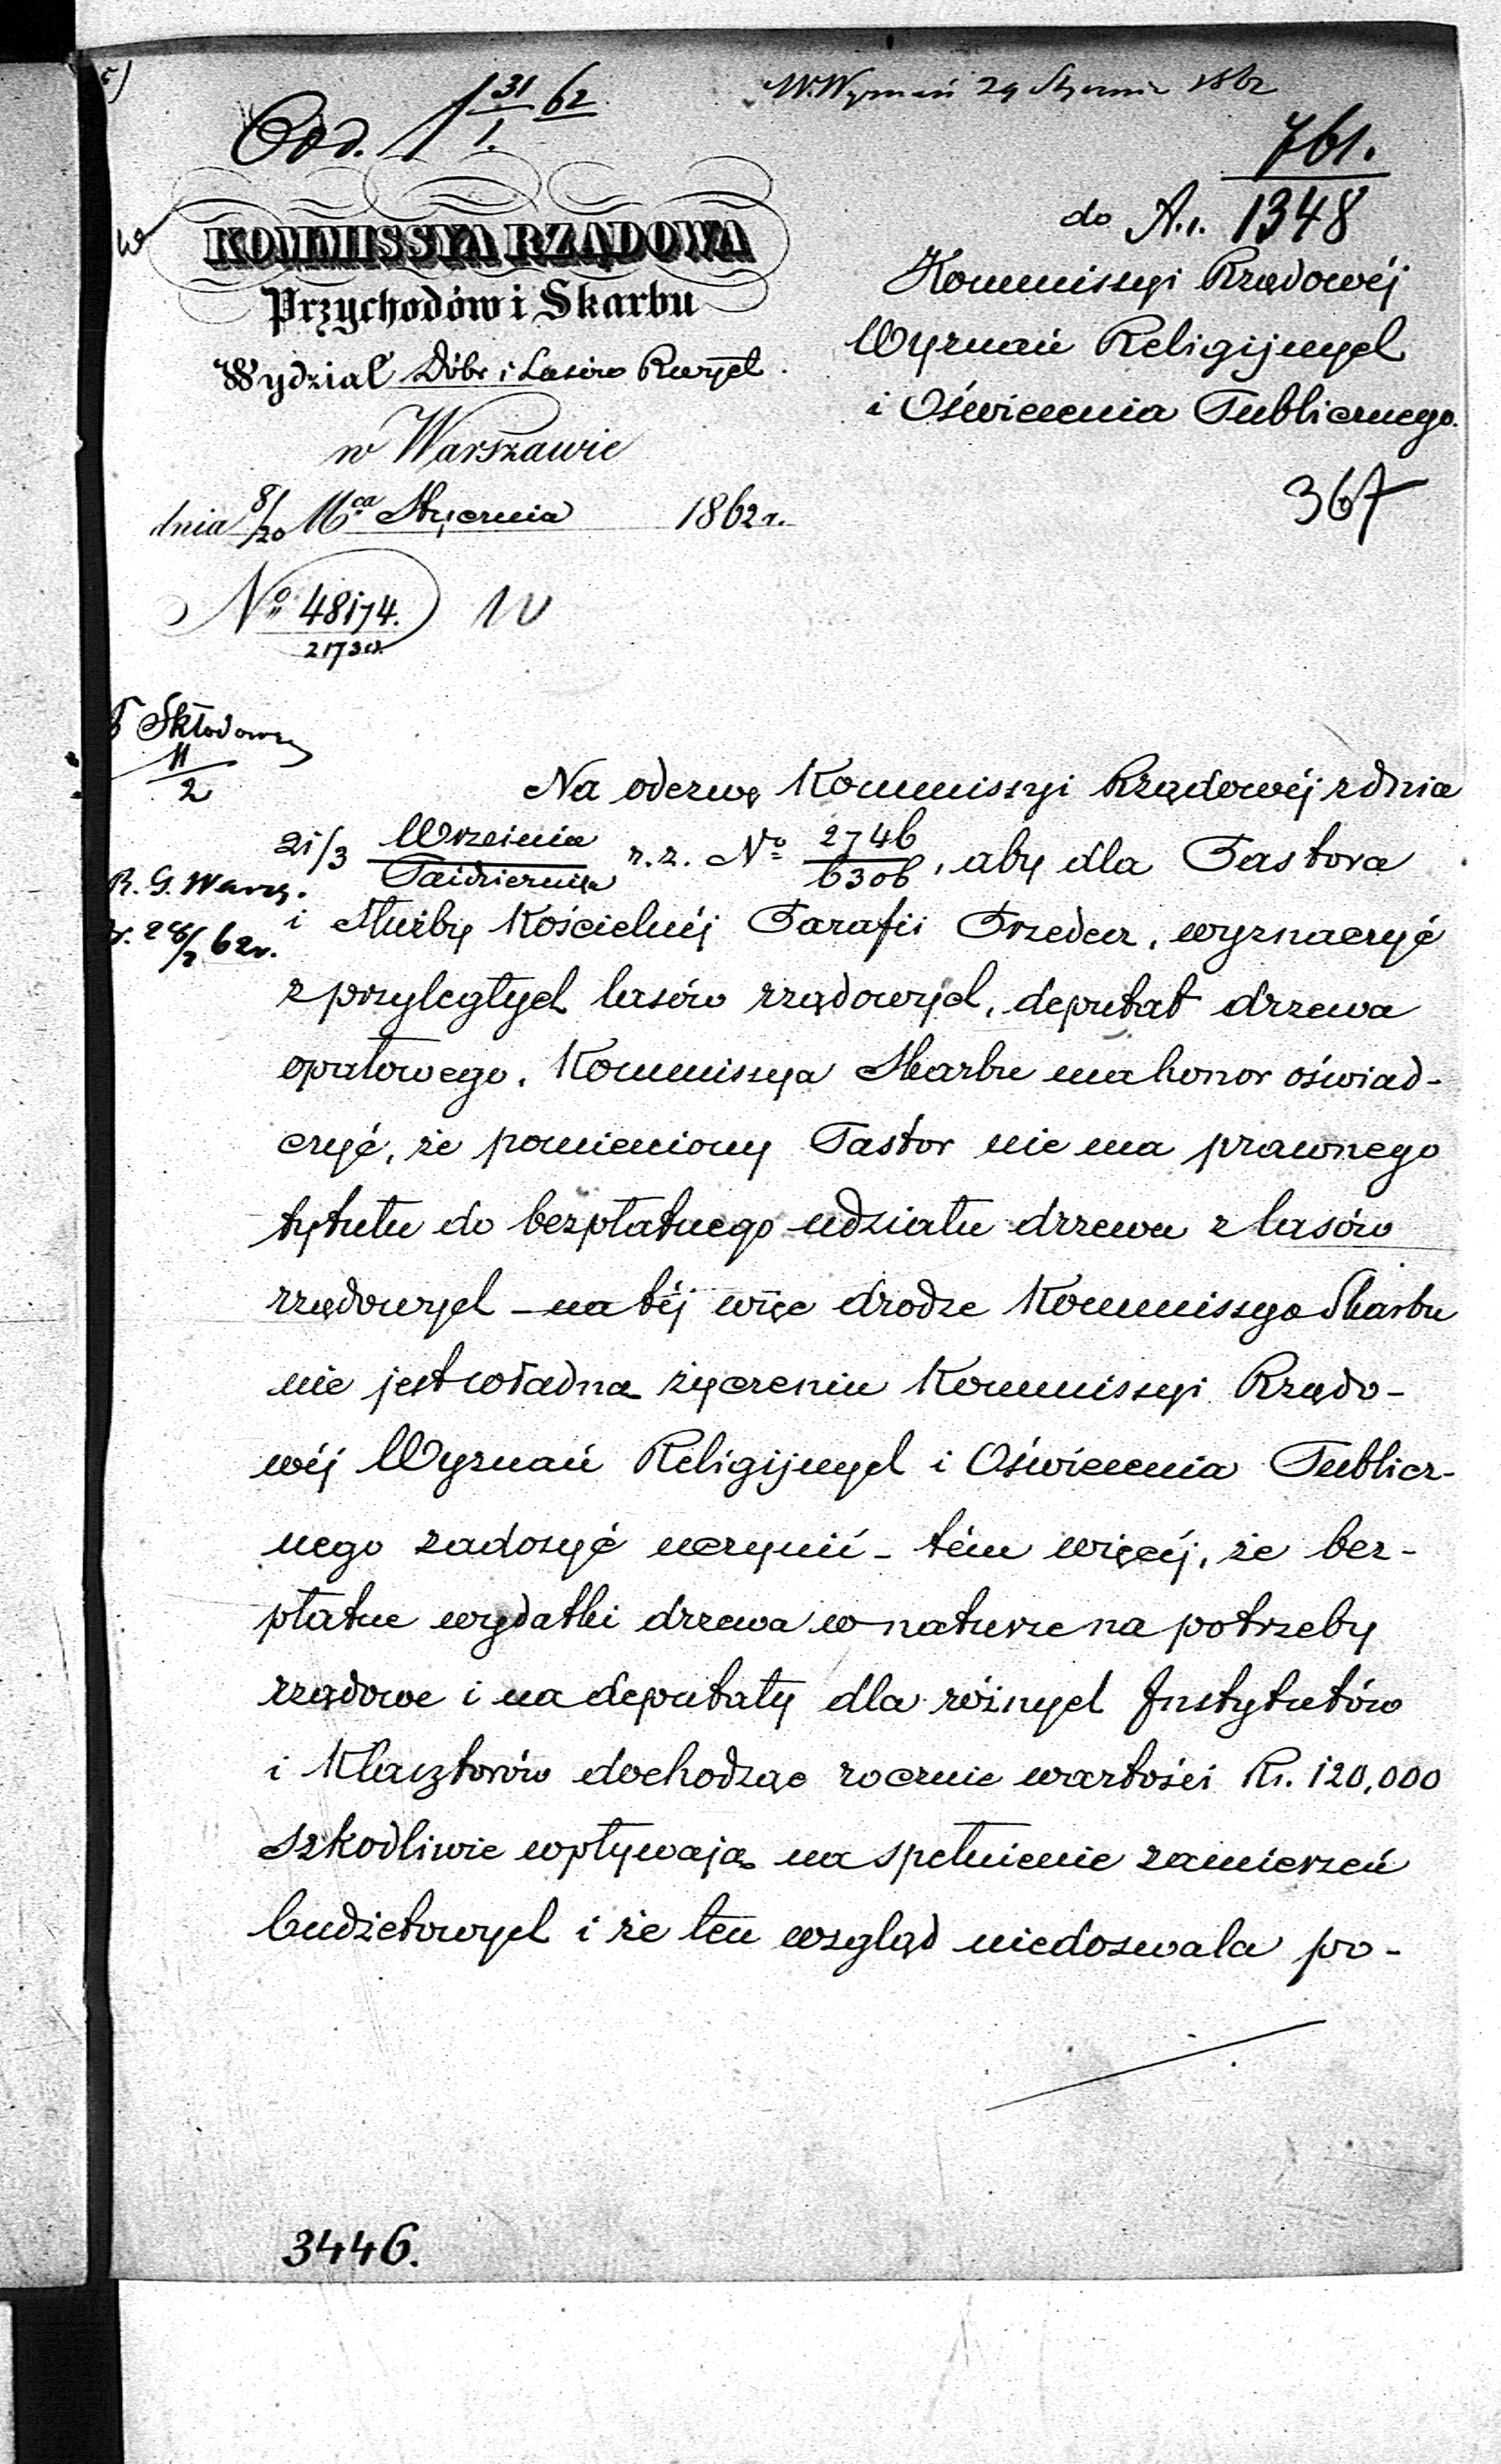 5)
Odd. 1 31/1. 62
W. Wyznań 29 Stycznia 1862
761.
do A.1. 1348
KOMMISSYA RZĄDOWA
Przychodów i Skarbu
Wydział Dóbr i Lasów Rząych.
w Warszawie
dnia 8/20 Mca Stycznia 1862 r.
No 48174.
21730.
Kommissyi Rządowéj
Wyznań Religijnych
i Oświecenia Publicznego.
367
Skłodows
11/2
R. G. Warsz.
62r.
Na odezwę Kommissyi Rządowéj z dnia
21/3 Września/Października r. z. No 2746/6306, aby dla Pastora
i Służby Kościelnéj Parafii Przedecz, wyznaczyć
z przyległych lasów rządowych, deputat drzewa
opałowego, Kommissya Skarbu ma honor oświad-
czyć, że pomieniony Pastor nie ma prawnego
tytułu do bezpłatnego udziału drzewa z lasów
rządowych – na téj więc drodze Kommissya Skarbu
nie jest władna życzeniu Kommissyi Rządo-
wéj Wyznań Religijnych i Oświecenia Publicz-
nego zadosyć uczynić – tém więcéj, że bez-
płatne wydatki drzewa w naturze na potrzeby
rządowe i na deputaty dla różnych Instytutów
i Klasztorów dochodząc rocznie wartości Rs. 120,000
szkodliwie wpływają na spełnienie zamierzeń
budżetowych i że ten wzgląd niedozwala po-
3446.